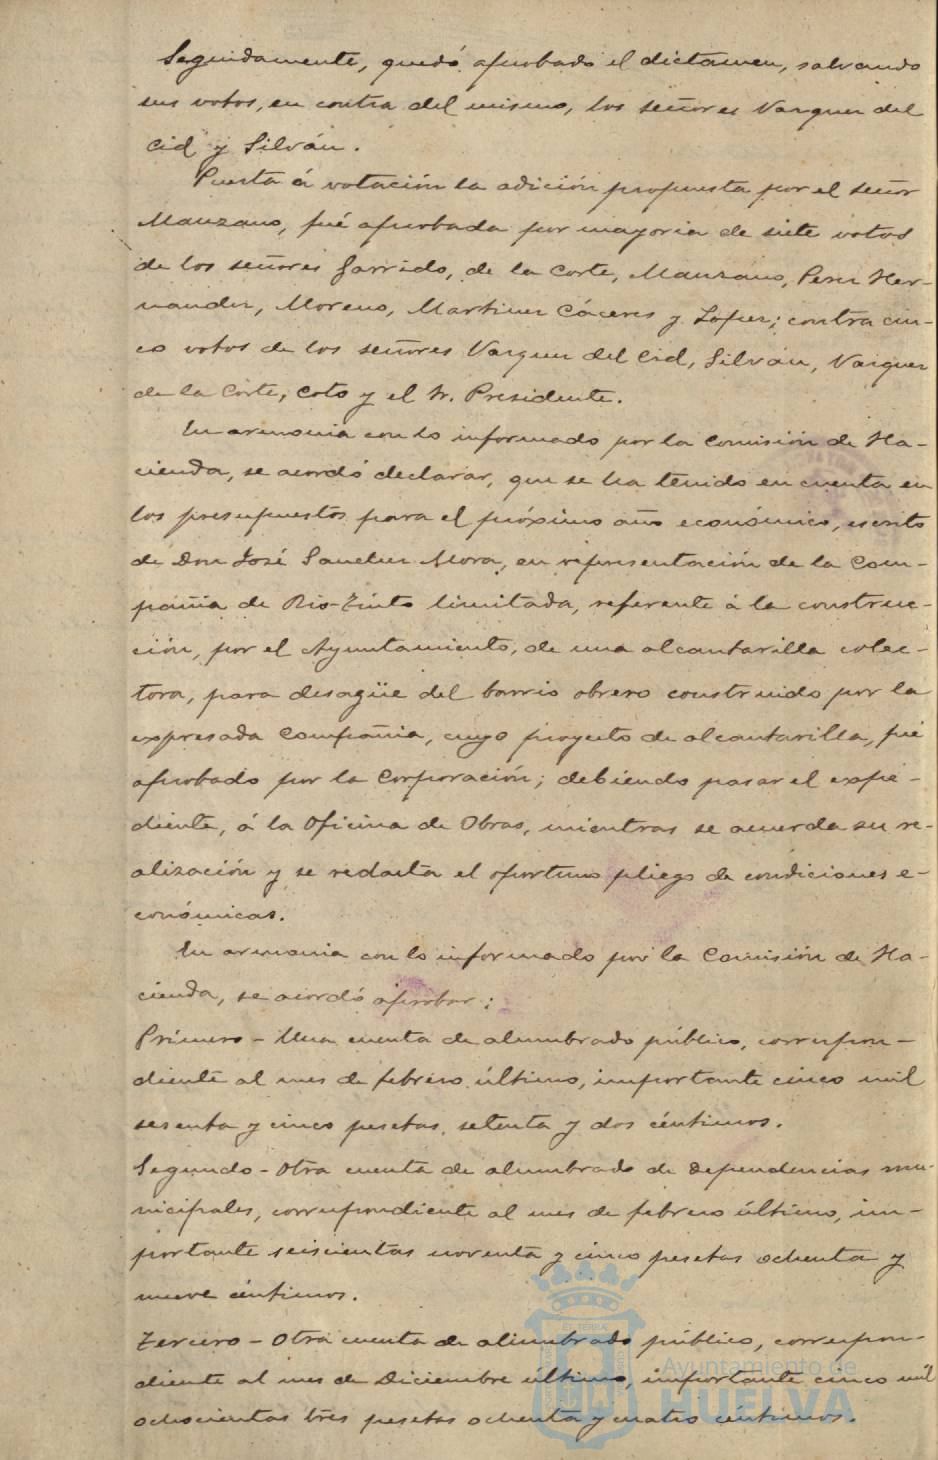 Seguidamente, quedó aprobado el dictamen, salvando
sus votos, en contra del mismo, los señores Vazquez del
Cid y Silván.
Puesta á votación la adición propuesta por el señor
Manzano, fué aprobada por mayoria de siete votos
de los señores Garrido, de la Corte, Manzano, Perez Her-
nandez, Moreno, Martinez Cáceres y Lopez; contra cin-
co votos de los señores Vazquez del Cid, Silván, Vazquez
de la Corte, Coto y el Sr. Presidente.
En armonia con lo informado por la Comisión de Ha-
cienda, se acordó declarar, que se ha tenido en cuenta en
los presupuestos para el próximo año económico, escrito
de Don José Sanchez Mora, en representación de la Com-
pañia de Rio-Tinto limitada, referente á la construc-
ción, por el Ayuntamiento, de una alcantarilla colec-
tora, para desagüe del barrio obrero construido por la
expresada Compañia, cuyo proyecto de alcantarilla, fué
aprobado por la Corporación; debiendo pasar el expe-
diente, á la Oficina de Obras, mientras se acuerda su re-
alización y se redacta el oportuno pliego de condiciones e-
conómicas.
En armonia con lo informado por la Comisión de Ha-
cienda, se acordó aprobar:
Primero - Una cuenta de alumbrado público, correspon-
diente al mes de febrero último, importante cinco mil
sesenta y cinco pesetas, setenta y dos céntimos.
Segundo - Otra cuenta de alumbrado de dependencias mu-
nicipales, correspondiente al mes de febrero último, im-
portante seiscientas noventa y cinco pesetas ochenta y
nueve céntimos.
Tercero - Otra cuenta de alumbrado público, correspon-
diente al mes de Diciembre último, importante cinco mil
ochocientas tres pesetas ochenta y cuatro céntimos.
Ayuntamiento de
HUELVA